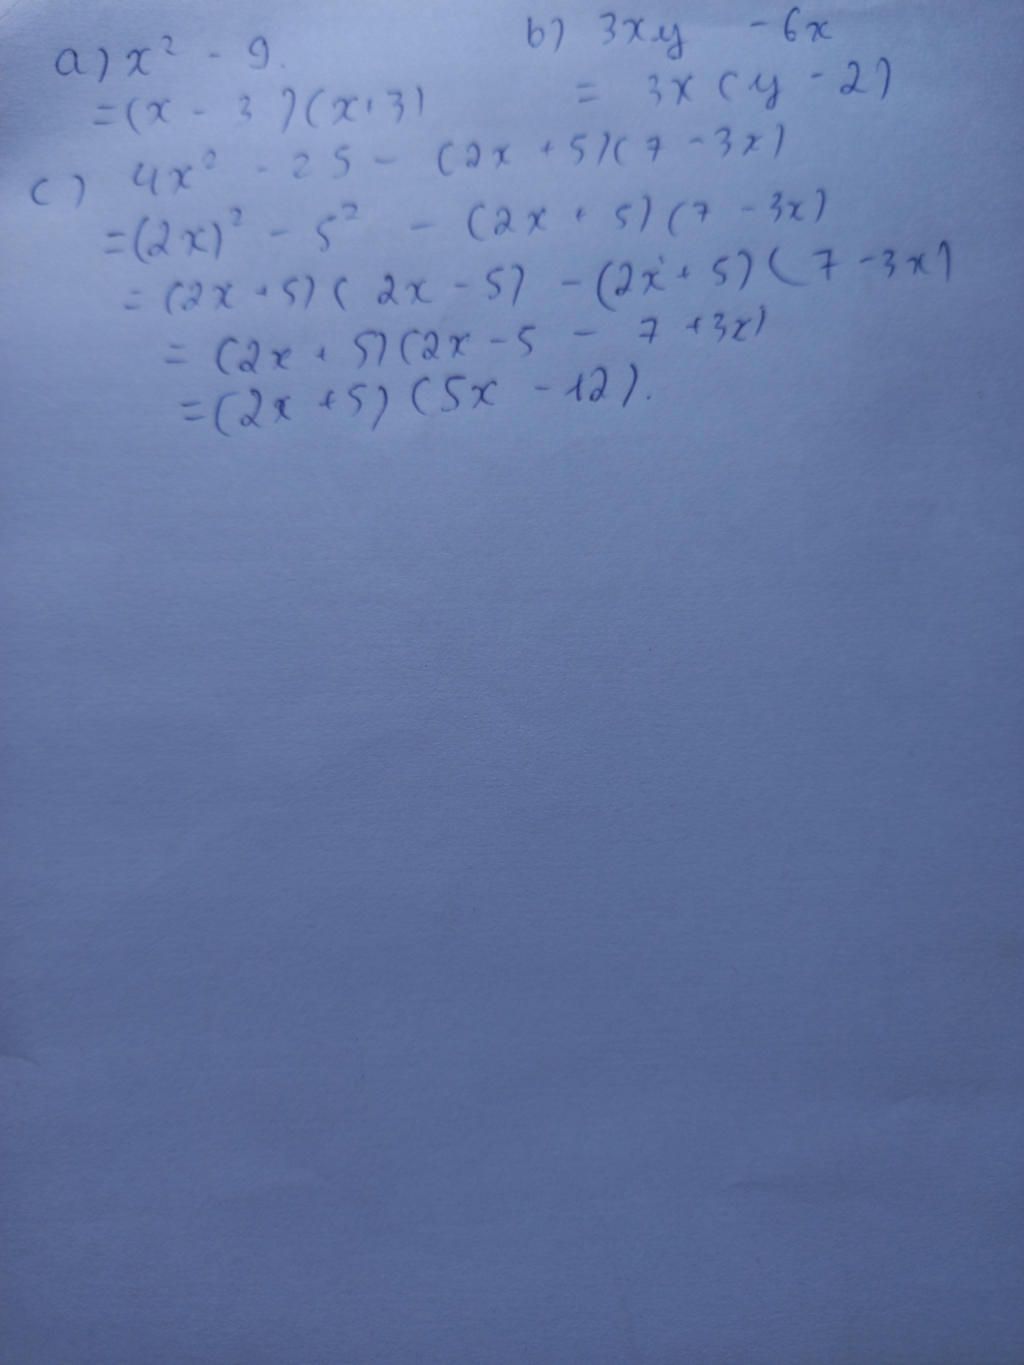 a) x² - 9.
= (x - 3)(x+3)
b) 3xy - 6x
= 3x(y - 2)
c) 4x² - 25 - (2x + 5)(7 - 3x)
= (2x)² - 5² - (2x + 5)(7 - 3x)
= (2x + 5)(2x - 5) - (2x + 5)(7 - 3x)
= (2x + 5)(2x - 5 - 7 + 3x)
= (2x + 5)(5x - 12).